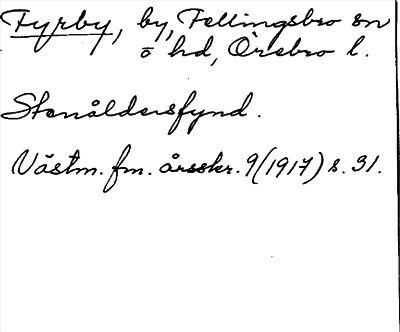 Fyrby, by, Fellingsbro sn
o hd, Örebro l.
Stenåldersfynd.
Västm. fm. årsskr. 9 (1917) s. 31.